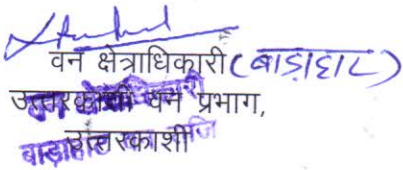 वन क्षेत्राधिकारी (बाड़ाहाट)
उत्तरकाशी वन प्रभाग,
उत्तरकाशी